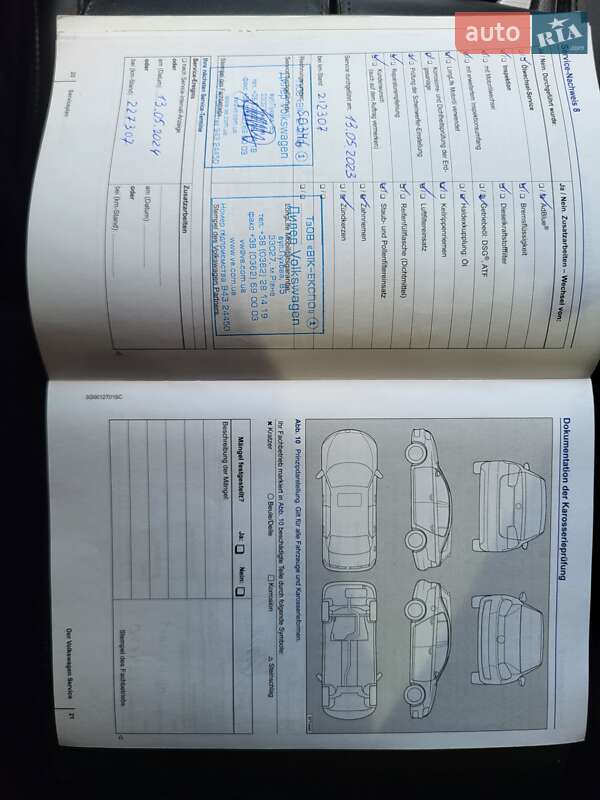 auto RIA.com
Service-Nachweis 8
Ja / Nein Zusatzarbeiten – Wechsel von:
Ölwechsel-Service
Inspektion
mit erweitertem Inspektionsumfang
LongLife Motoröl verwendet
Prüfung der Scheinwerfer-Einstellung
Reparaturempfehlung
Kundenwunsch
(auch auf dem Auftrag vermerken)
AdBlue®
Bremsflüssigkeit
Dieselkraftstofffilter
Getriebeöl: DSG®, ATF
Haldexkupplung: Öl
Keilrippenriemen
Luftfiltereinsatz
Reifenfüllflasche (Dichtmittel)
Staub- und Pollenfiltereinsatz
Zahnriemen
Zündkerzen
Service durchgeführt am: 13.05.2023
bei km-Stand: 212307
ТзОВ «ВПК-ЕКСПО» 1
Дилер Volkswagen
33027, м.Рівне
тел. +38 (0362) 28 14 19
факс +38 (0362) 69 00 03
www.vw.com.ua
Номер підприємства 943 24450
Stempel des Volkswagen Partners
Ihre nächsten Service-Termine
Service-Ereignis
Zusatzarbeiten
nach Service-Intervall-Anzeige
oder
am (Datum): 13.05.2024
am (Datum):
oder
oder
bei (km-Stand): 227307
bei (km-Stand):
20
Serviceplan
Dokumentation der Karosserieprüfung
Abb. 10 Prinzipdarstellung. Gilt für alle Fahrzeuge und Karosserieformen.
Ihr Fachbetrieb markiert in Abb. 10 beschädigte Teile durch folgende Symbole:
✖ Kratzer
○ Beule/Delle
□ Korrosion
△ Steinschlag
Mängel festgestellt?
Ja: □
Nein: □
Beschreibung der Mängel:
Stempel des Fachbetriebs
Der Volkswagen Service
21